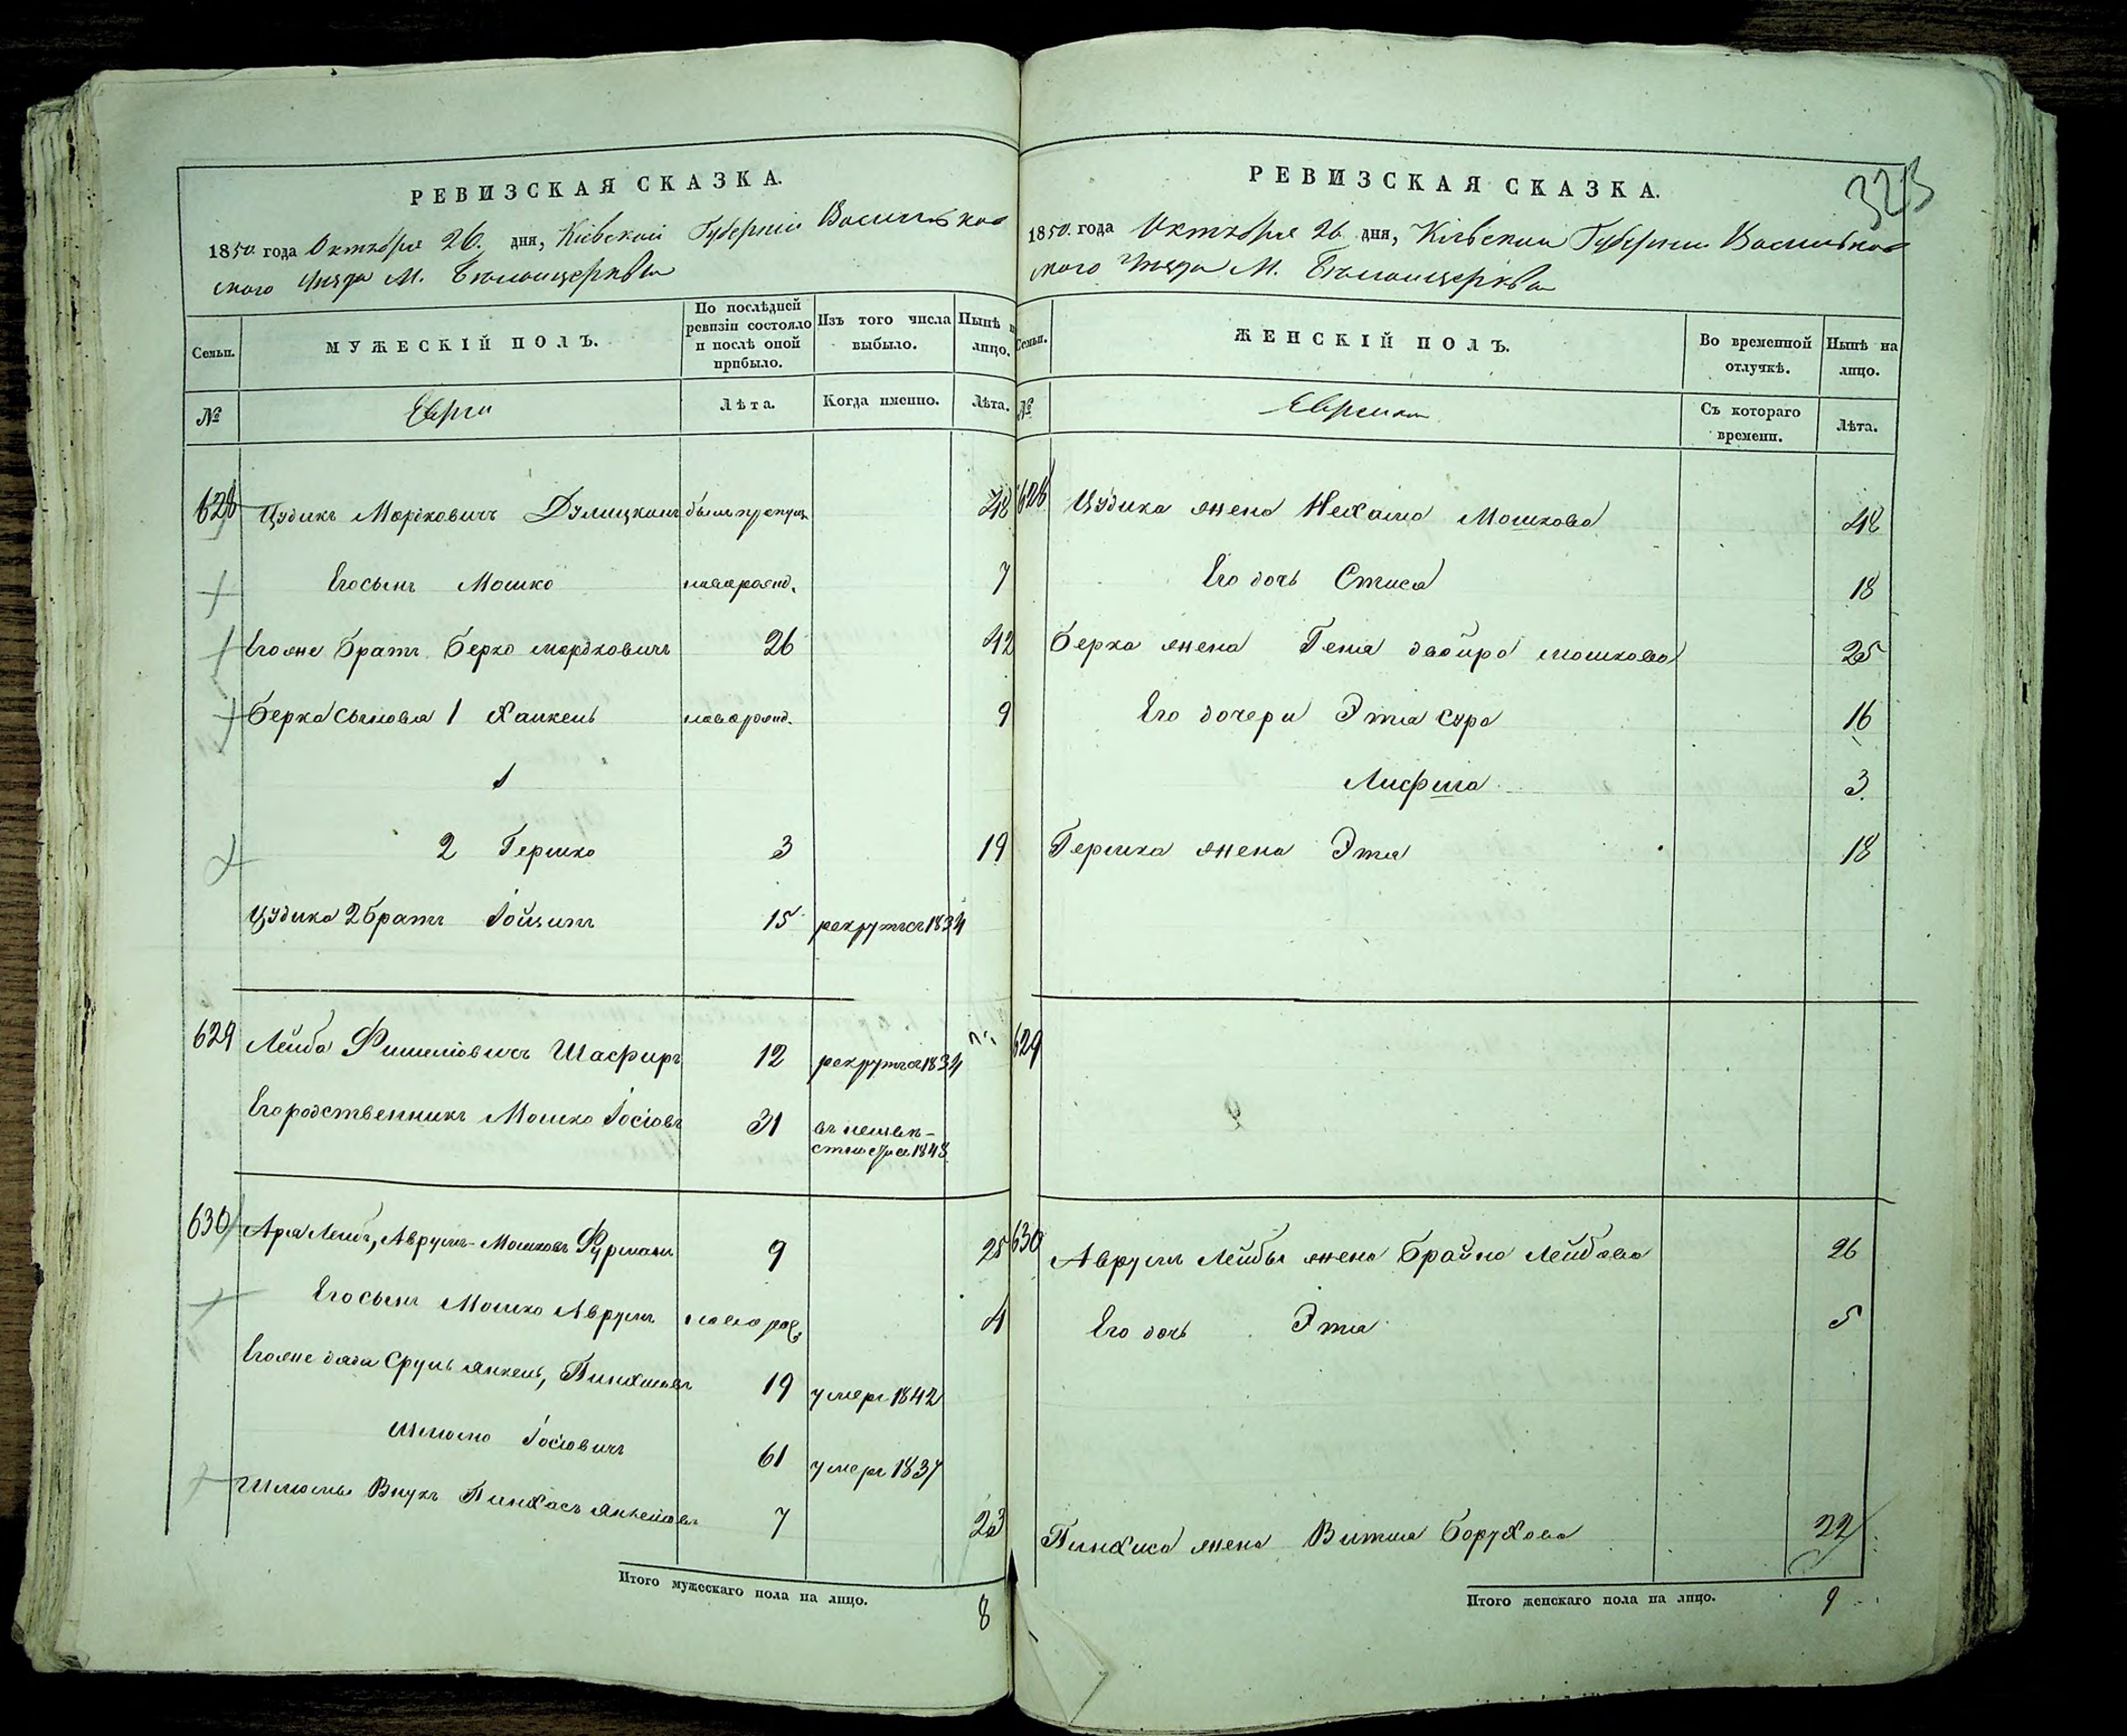 РЕВИЗСКАЯ СКАЗКА.
1850 года Октября 26. дня, Кіевской Губерніи Васильков
ского Уезда М. Белоцерквы
Семьи.
МУЖЕСКІЙ ПОЛЪ.
По послѣдней ревизіи состояло и послѣ оной прибыло.
Изъ того числа выбыло.
Нынѣ на лицо.
№
Евреи
Лѣта.
Когда именно.
Лѣта.
628 Цудикъ Мордковичъ былъ пропущ 48
Егосынъ Мошко новорожд. 7
Егоже братъ Берко Мордковичъ 26 42
Берка сыновья 1 Хаикель новорожд. 9
1
2 Гершко 3 19
Цудика 2 братъ Іойсипъ 15 рекрутъ 1834
629 Лейба Фишелiовичъ Шасфиръ 12 рекрутъ 1834
Егородственникъ Мошко Іосіовъ 31 въ неизвѣ-
стно 1848
630 Аря Лейбъ, Аврумъ-Мошковъ Фурманъ 9 25
Егосынъ Мошко Аврумъ новорож 4
Егоже дядя Сруль Янкель, Пинхасовъ 19 умеръ 1842
Шлiомо Іосіовичъ 61 умеръ 1837
Шлiомы Внукъ Пинхасъ Янкелiовъ 7 23
Итого мужескаго пола на лицо. 8
323
РЕВИЗСКАЯ СКАЗКА.
1850. года Октября 26 дня, Кіевской Губерніи Васильков
ского Уезда М. Белоцерквы
Семьи.
ЖЕНСКІЙ ПОЛЪ.
Во временной отлучкѣ.
Нынѣ на лицо.
№
Еврейки
Съ котораго времени.
Лѣта.
628 Цудика жена Нехама Мошкова 48
Его дочь Стися 18
Берка жена Геня двойра мошкова 25
Его дочериЭтя сура 16
3
Гершка жена Этя 18
629
630 Аврумъ Лейбы жена Брайна Лейбова 26
Его дочь Этя 5
Пинхиса жена Витля Борухова 22
Итого женскаго пола на лицо. 9